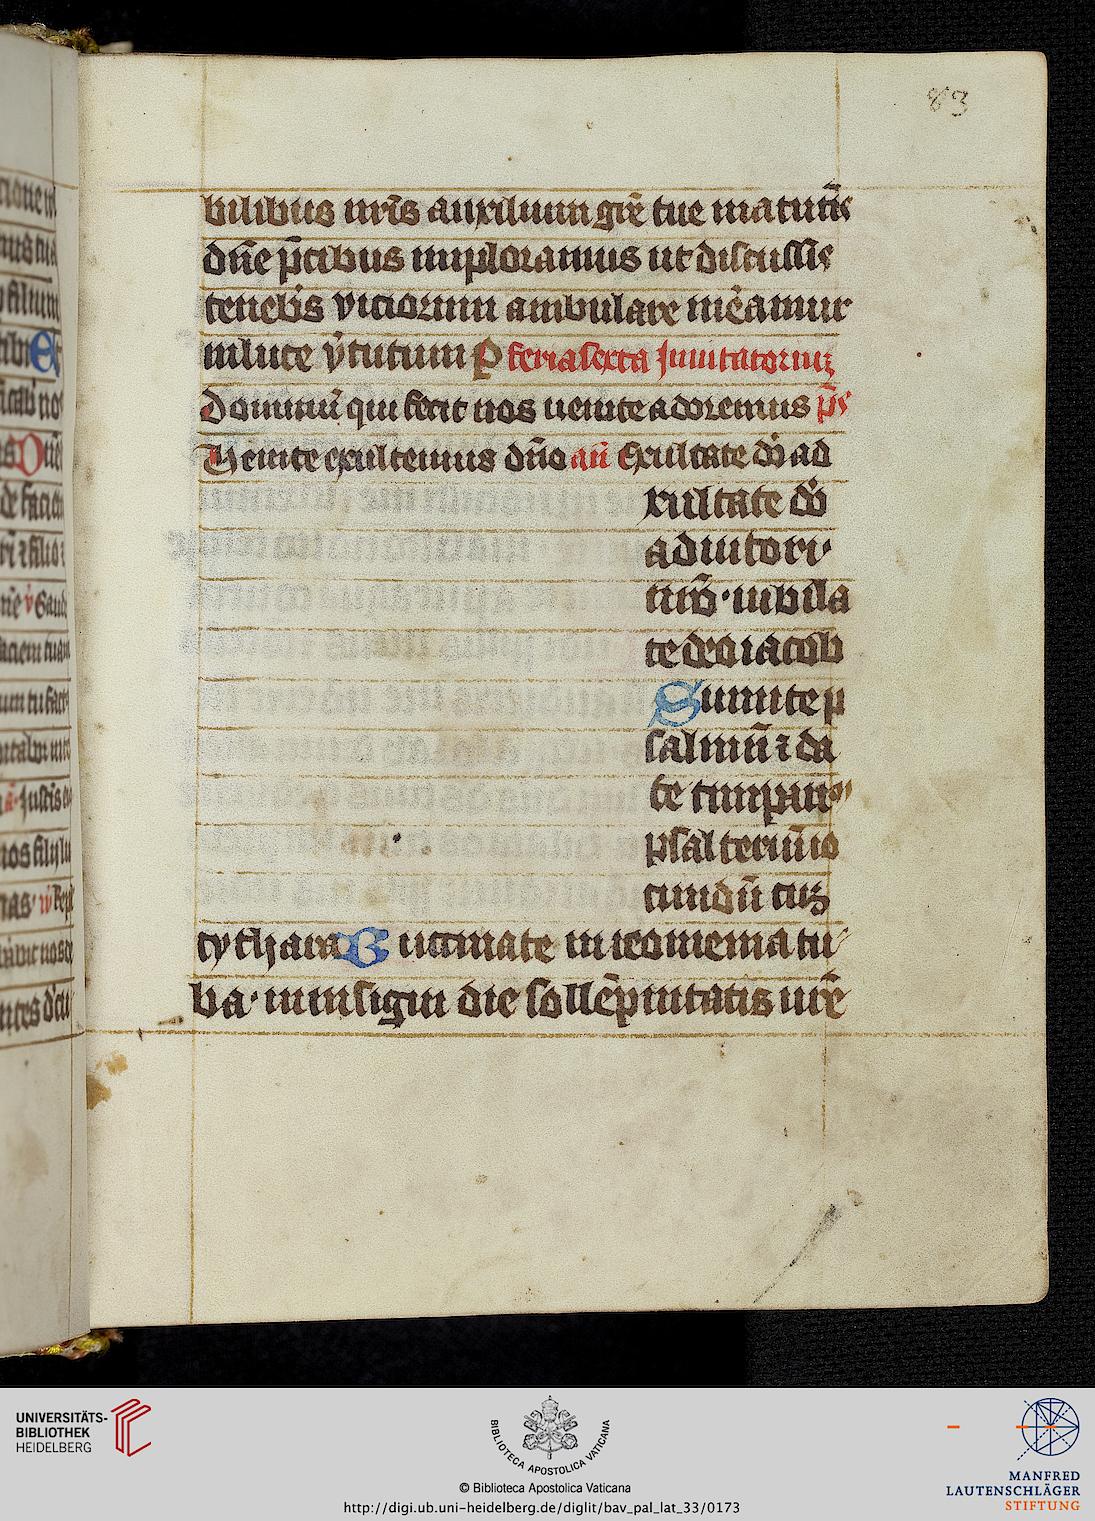 83
bilibus nr̄is auxilium gr̄e tue matutīs
dn̄e p̄cibus imploramus ut discussis
tenebris viciorum ambulare mēamur
inluce v̄tutum P feria sexta Inuitatoriuꝫ
Dominū qui fecit nos uenite adoremus p̄s
Venite exultemus dn̄o an̄ Exultate dō ad
xultate dō
adiutori
nr̄o · iubila
te deo iacob
Sumite p
salmū ⁊ da
te timpanū
psalteriū io
cundū cuꝫ
cythara B uccinate in neomenia tu
ba · in insigni die sollēpnitatis nr̄e
UNIVERSITÄTS-
BIBLIOTHEK
HEIDELBERG
BIBLIOTECA APOSTOLICA VATICANA
© Biblioteca Apostolica Vaticana
http://digi.ub.uni-heidelberg.de/diglit/bav_pal_lat_33/0173
MANFRED
LAUTENSCHLÄGER
STIFTUNG